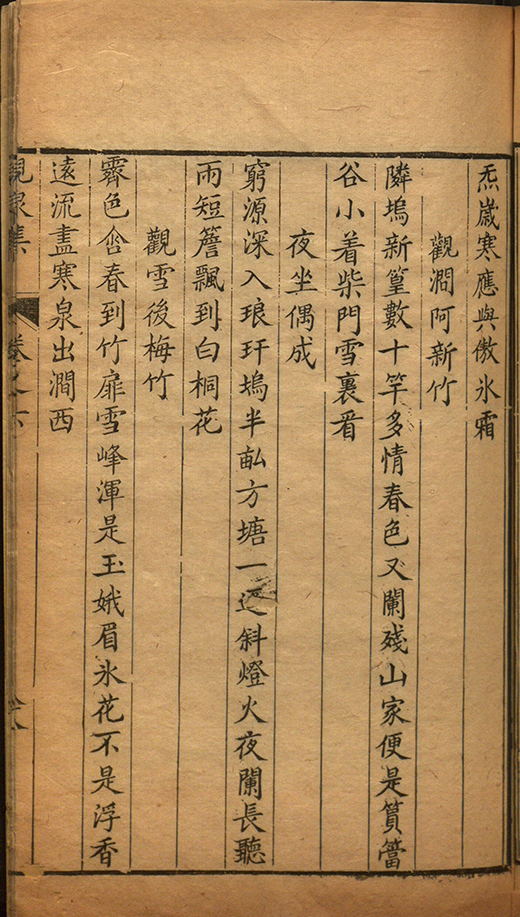 炁歲寒應與傲氷霜
觀澗阿新竹
隣塢新篁數十竿多情春色又闌殘山家便是篔簹
谷小着柴門雪裏看
夜坐偶成
窮源深入琅玕塢半畝方塘一逕斜燈火夜闌長聽
雨短簷飄到白桐花
觀雪後梅竹
霽色含春到竹扉雪峰渾是玉娥眉氷花不是浮香
遠流盡寒泉出澗西
峴泉集 卷之六